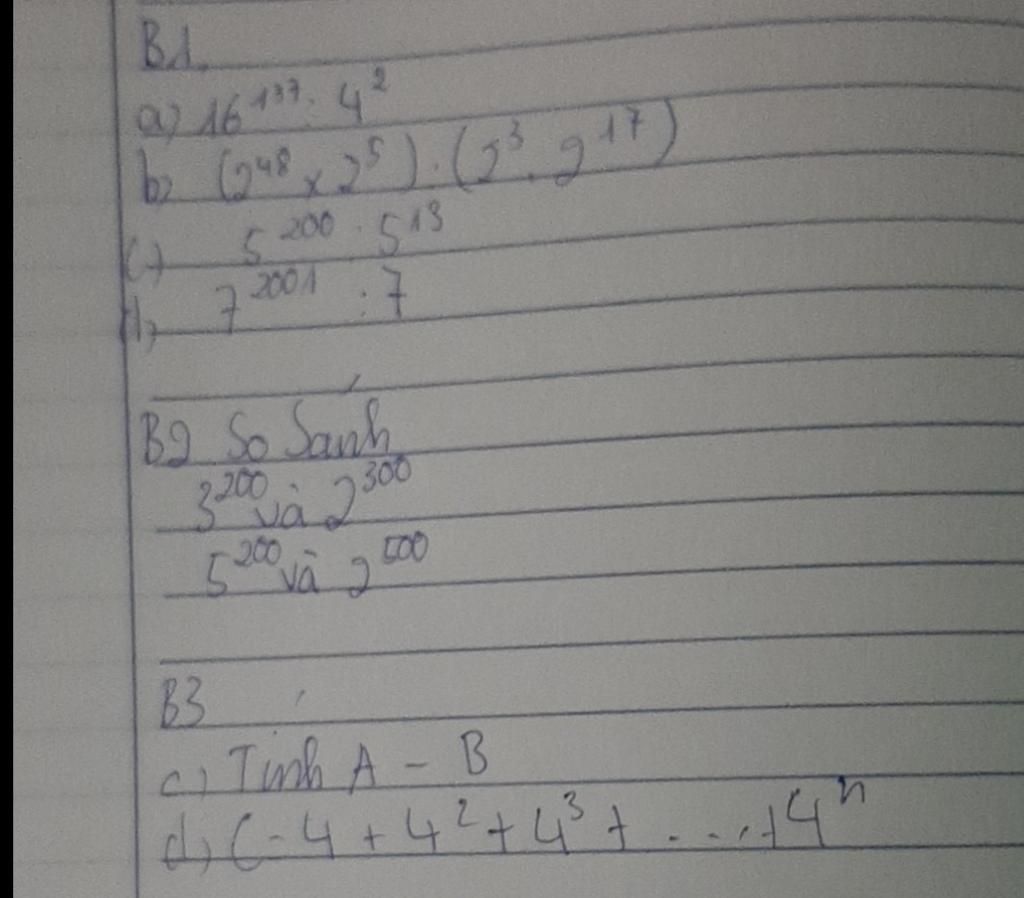 B1.
a) 16¹³⁷ : 4²
b) (2⁴⁸ × 2⁵) . (2³ . 2¹⁷)
c) 5²⁰⁰ . 5¹³
d) 7²⁰⁰¹ : 7
B2 So Sánh
3²⁰⁰ và 2³⁰⁰
5²⁰⁰ và 2⁵⁰⁰
B3
c) Tính A - B
d) C - 4 + 4² + 4³ + .... + 4ⁿ